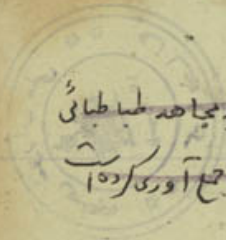 مجاهد طباطبائی
جمع آوری کرده است